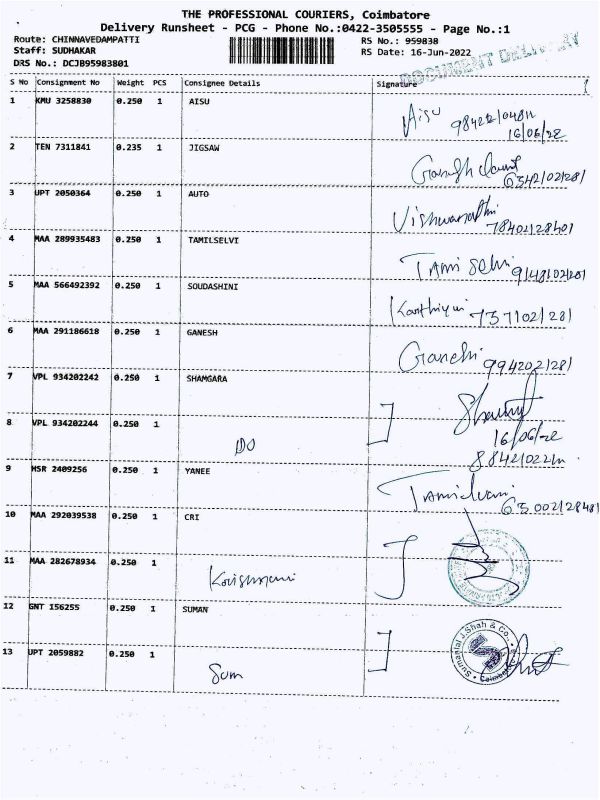 THE PROFESSIONAL COURIERS, Coimbatore
Delivery Runsheet - PCG - Phone No.:0422-3505555 - Page No.:1
Route: CHINNAVEDAMPATTI RS No.: 959838
Staff: SUDHAKAR RS Date: 16-Jun-2022
DRS No.: DCJB95983801
DOCUMENT DELIVERY
S No Consignment No Weight PCS Consignee Details Signature
1 KMU 3258830 0.250 1 AISU
Aisu
16/06/22
2 TEN 7311841 0.235 1 JIGSAW
3 UPT 2050364 0.250 1 AUTO
4 MAA 289935483 0.250 1 TAMILSELVI
5 MAA 566492392 0.250 1 SOUDASHINI
737102/281
6 MAA 291186618 0.250 1 GANESH
994202/281
7 VPL 934202242 0.250 1 SHAMGARA
8 VPL 934202244 0.250 1
DO
16/06/22
9 HSR 2409256 0.250 1 YANEE
10 MAA 292039538 0.250 1 CRI
11 MAA 282678934 0.250 1
12 GNT 156255 0.250 1 SUMAN
Sumanlal J.Shah & Co.,
13 UPT 2059882 0.250 1
Sum